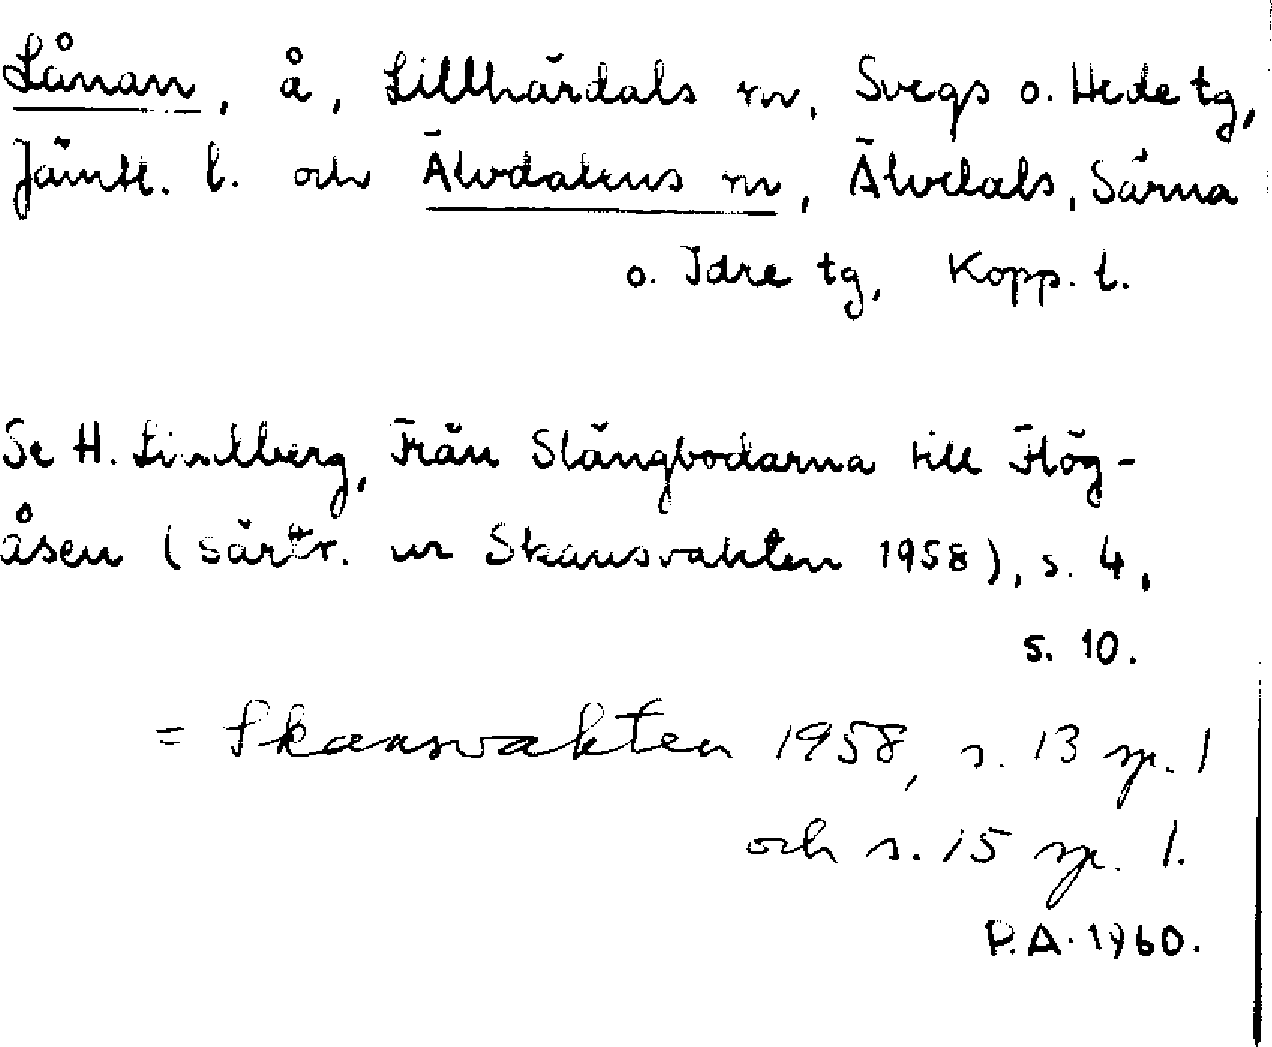 Lånan, å, Lillhärdals sn, Svegs o. Hede tg,
Jämtl. l. och Älvdalens sn, Älvdals, Särna
o. Idre tg, Kopp. l.
Se H. Lindberg, Från Slängbodarna till Hög-
åsen (särtr. ur Skansvakten 1958), s. 4,
s. 10.
= Skansvakten 1958, s. 13 sp. 1
och s. 15 sp. 1.
P.A. 1960.